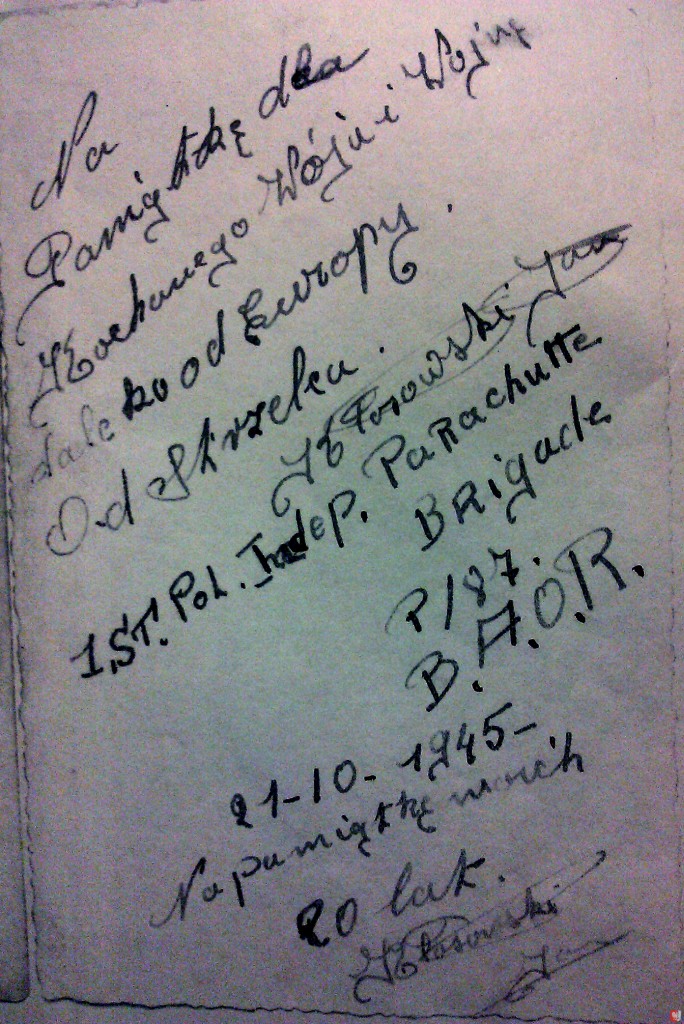 Na
Pamiątkę dla
Kochanego Wójui Wojny
daleko od Europy.
Od Strzelca.
Kłosowski Jan
1.ST. Pol. Indep. Parachutte
Brigade
P/87.
B.A.O.R.
21-10-1945-
Na pamiątkę moich
20 lat.
Kłosowski
Jan